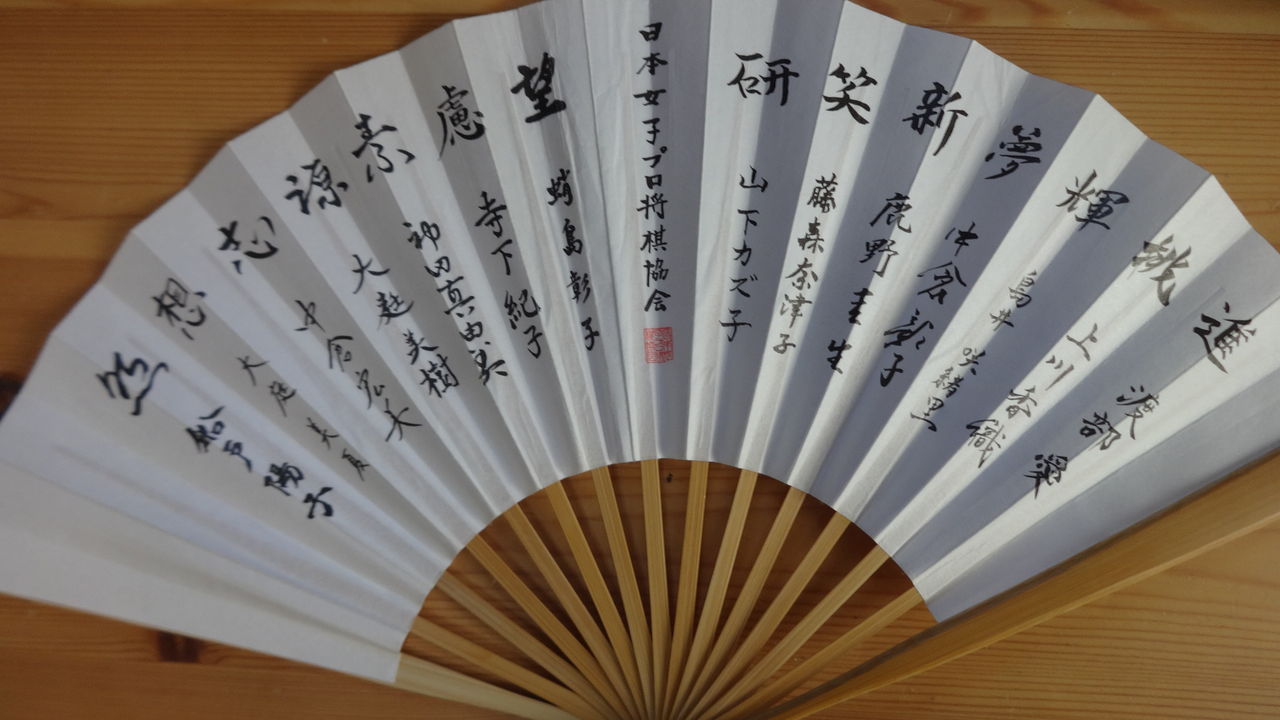 進 渡部愛
挑 上川香織
輝 島井咲緒里
夢 中倉彰子
新 鹿野圭生
笑 藤森奈津子
研 山下カズ子
日本女子プロ将棋協会
望 蛸島彰子
慮 寺下紀子
素 神田真由美
諒 大庭美樹
志 中倉宏美
想 大庭美夏
船戸陽子